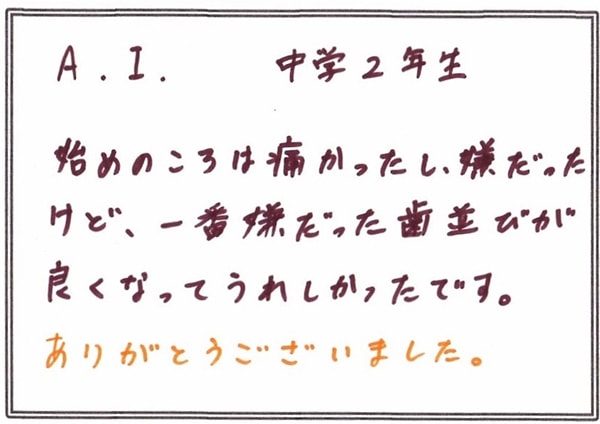 A.I. 中学2年生
始めのころは痛かったし、嫌だった
けど、一番嫌だった歯並びが
良くなってうれしかったです。
ありがとうございました。